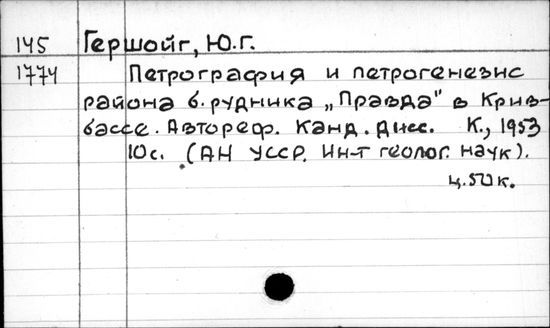 145 Гершойг, Ю.Г.
1774 Петрография и петрогенезис
района б. рудника „Правда" в Крив-
бассе. Автореф. Канд. дисс. К., 1953
10с. (АН УССР. Ин-т геолог. наук).
ц.50к.